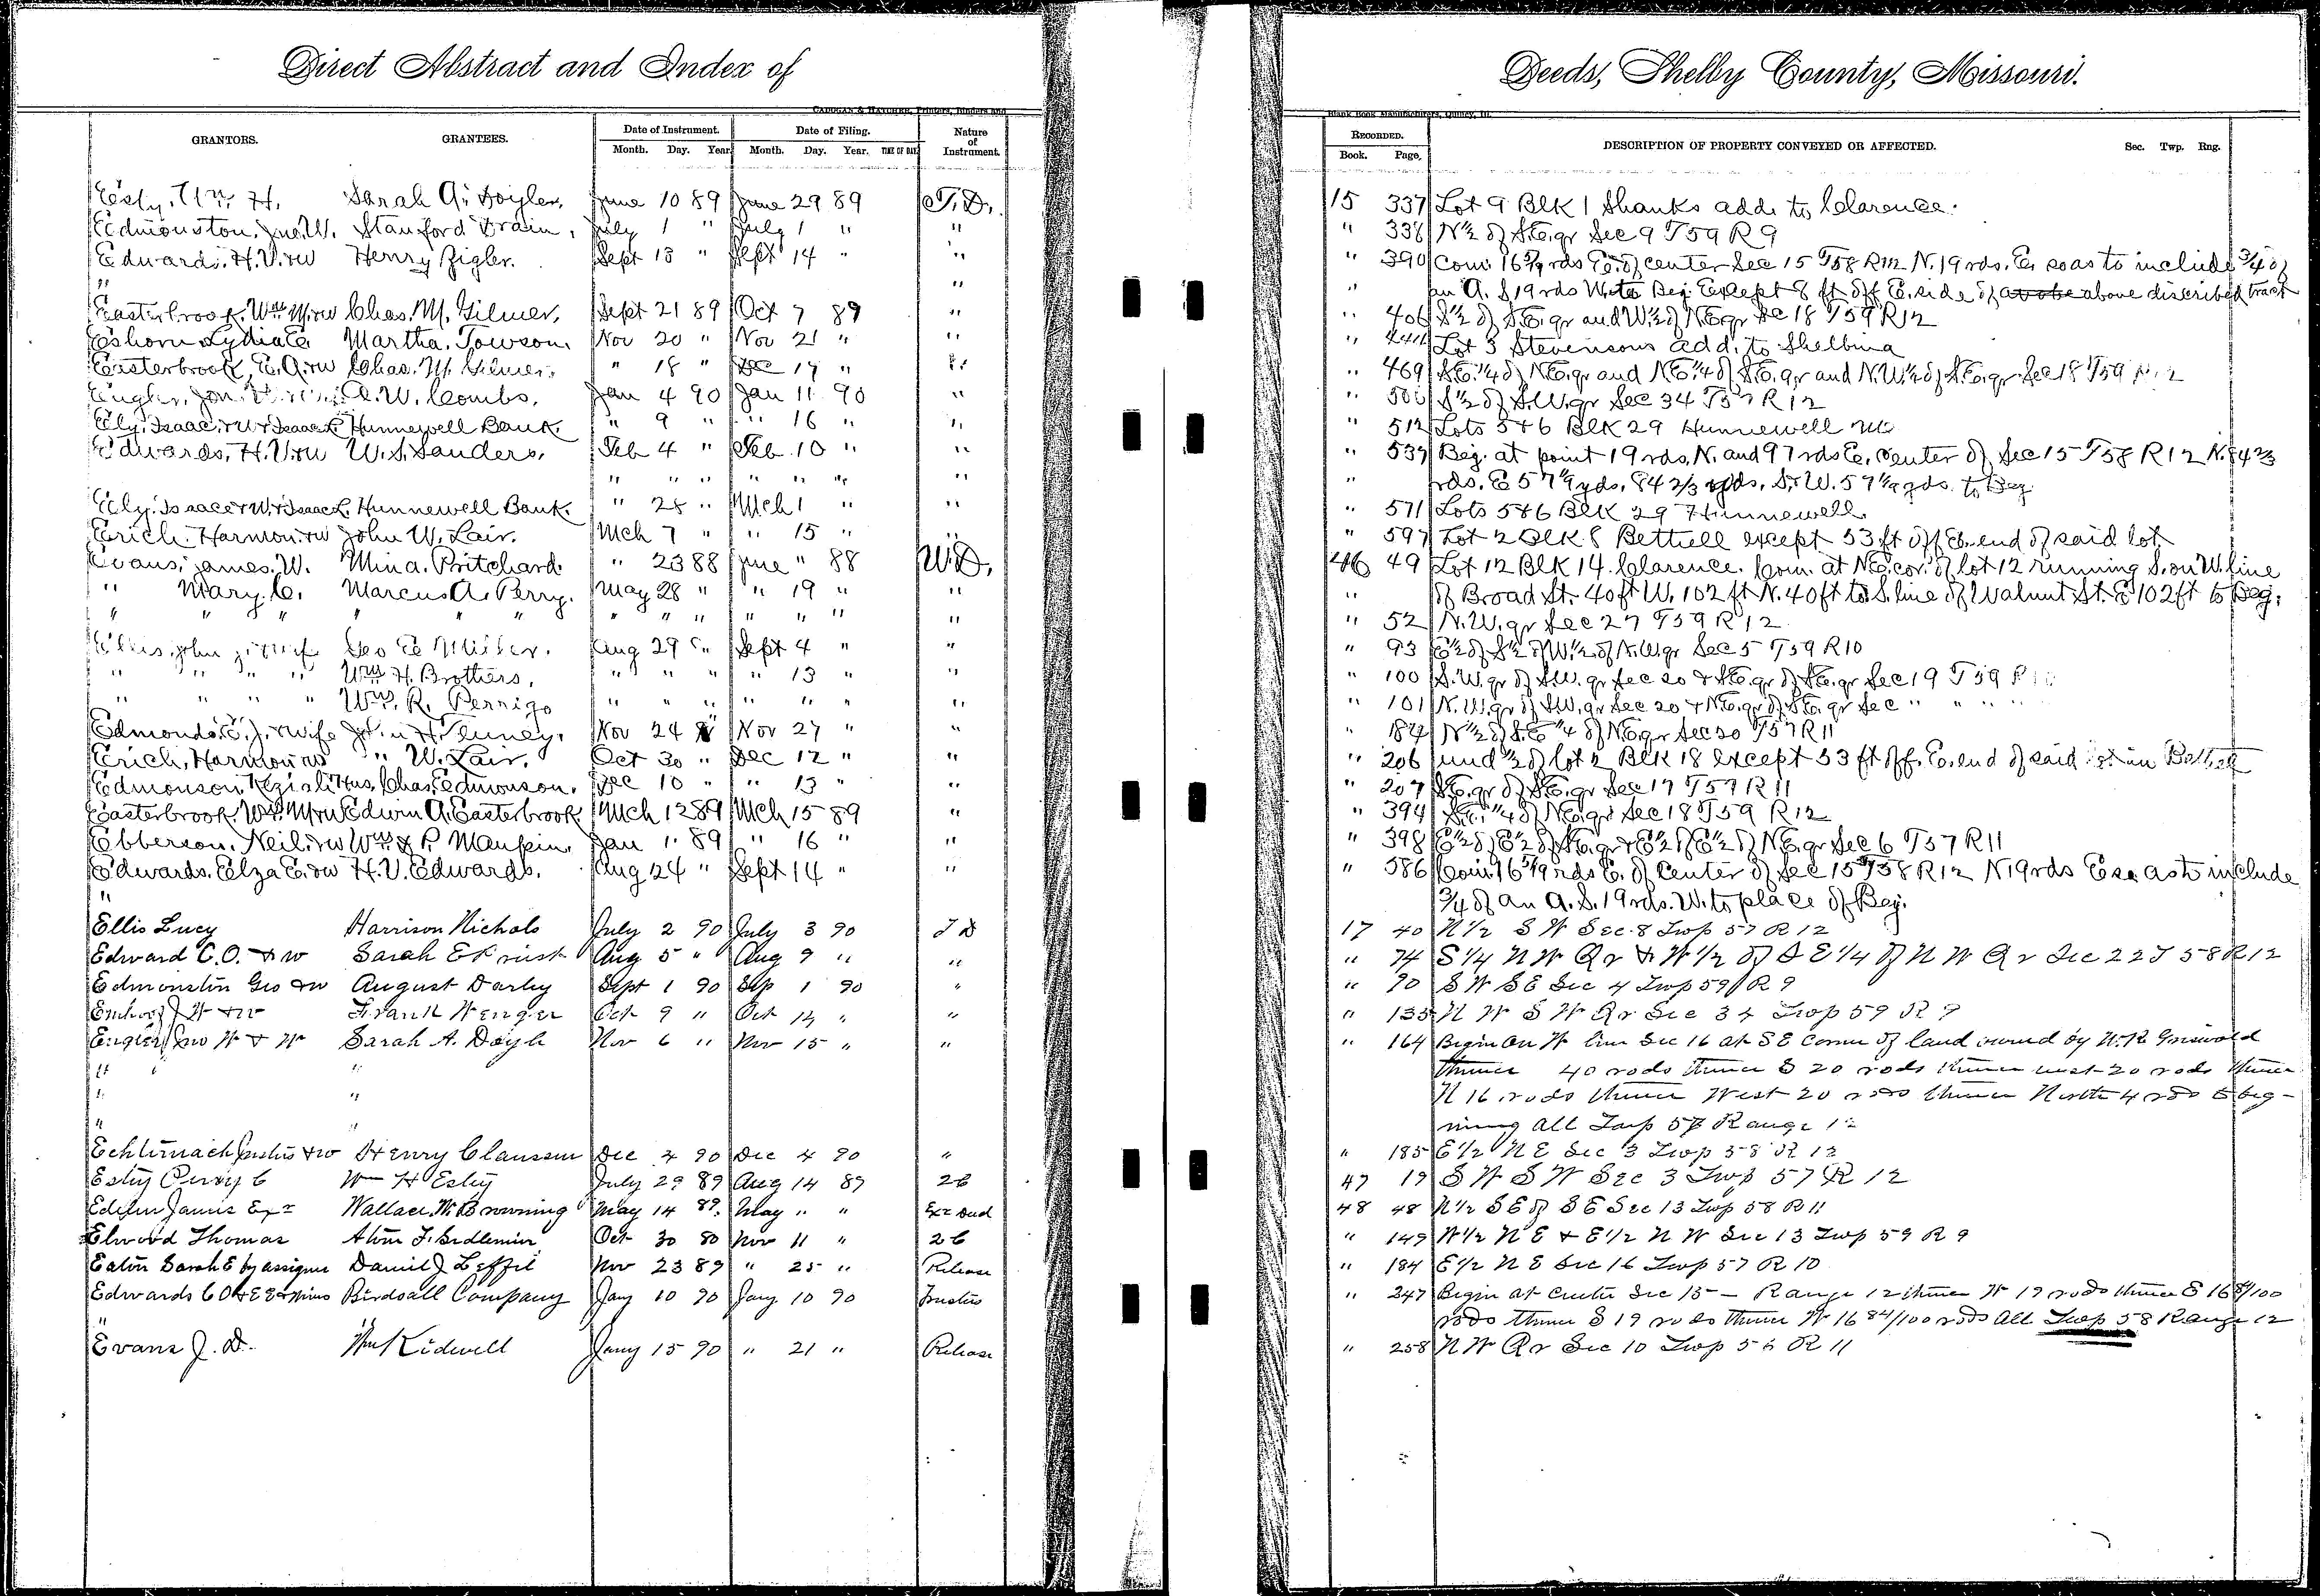 Direct Abstract and Index of Deeds, Shelby County, Missouri.
CADOGAN & HATCHER, Printers, Binders and Blank Book Manufacturers, Quincy, Ill.
GRANTORS. GRANTEES. Date of Instrument. Date of Filing. Nature of Instrument. RECORDED. DESCRIPTION OF PROPERTY CONVEYED OR AFFECTED. Sec. Twp. Rng.
Month. Day. Year. Month. Day. Year. TIME OF DAY Book. Page.
Esty, Wm. H. Sarah A. Doyler. June 10 89 June 29 89 T.D. 15 337 Lot 9 Blk 1 Shanks add. to Clarence.
Edmonston, Jno. W. Stanford Drain. July 1 " July 1 " " " 338 N½ of S.E. qr Sec 9 T59 R9
Edwards, H.V. & w Henry Zigler. Sept 13 " Sept 14 " " " 390 Com. 16 5/9 rds E. of center Sec 15 T58 R12 N. 19 rds. E. so as to include 3/4 of
" " " an A. S 19 rds W. to Beg. Except 8 ft off E. side of above discribed tract
Easterbrook, Wm. M. & w Chas. M. Gilmer. Sept 21 89 Oct 7 89 " " 406 S½ of S.E. qr and W½ of N.E. qr Sec 18 T59 R12
Eshorn Lydia E Martha. Towson. Nov 20 " Nov 21 " " " 444 Lot 3 Stevensons add. to Shelbina
Easterbrook, E.A. & w Chas. M. Gilmer. " 18 " Dec 17 " " " 469 S.E. ¼ of N.E. qr and N.E. ¼ of S.E. qr and N.W. ¼ of S.E. qr Sec 18 T59 R12
Engler, Jno. W. & w A.W. Combs. Jan 4 90 Jan 11 90 " " 500 S½ of S.W. qr Sec 34 T57 R12
Ely, Isaac, & W & Isaac L Hunnewell Bank " 9 " " 16 " " " 512 Lots 5 & 6 Blk 29 Hunnewell Mo
Edwards, H.V. & w W.S. Sanders. Feb 4 " Feb. 10 " " " 539 Beg. at point 19 rds. N. and 97 rds E. Center of Sec 15 T58 R12 N. 84 2/3
" " " " " " " " rds. E 57 1/9 yds. 84 2/3 yds. S. & W. 57 1/9 yds. to Beg.
Ely, Isaac & W & Isaac L. Hunnewell Bank. " 28 " Mch 1 " " " 571 Lots 5 & 6 Blk 29 Hunnewell.
Erich, Harmon & w John W. Lair. Mch 7 " " 15 " " " 597 Lot 2 Blk 8 Bethell except 53 ft off E. end of said lot
Evans, James. W. Mina. Pritchard. " 23 88 June " 88 W.D. 46 49 Lot 12 Blk 14. Clarence. Com. at N.E. cor. of lot 12 running S. on W. line
" Mary. C. Marcus A. Perry. May 28 " " 19 " " " of Broad St. 40 ft W. 102 ft N. 40 ft to S. line of Walnut St. E 102 ft to Beg.
" " " " " " " " " " " " " 52 N.W. qr Sec 27 T59 R12
Ellis, John & wife Geo E Miller. Aug 29 " Sept 4 " " " 93 E½ of S½ of W½ of N.W. qr Sec 5 T59 R10
" " " " Wm. H. Brothers. " " " " 13 " " " 100 S.W. qr of S.W. qr Sec 20 & S.E. qr of S.E. qr Sec 19 T59 R10
" " " " Wm. R. Perrigo " " " " " " " " 101 N.W. qr of S.W. qr Sec 20 & N.E. qr of S.E. qr Sec " " " "
Edmonds, E.J. & wife John H. Tenney. Nov 24 8 Nov 27 " " " 184 N½ of S.E. ¼ of N.E. qr Sec 30 T57 R11
Erich, Harmon & w " W. Lair. Oct 30 " Dec 12 " " " 206 und ½ of lot 2 Blk 18 except 53 ft off. E. end of said lot in Bethell
Edmonson, Keziah & Hus. Chas. Edmonson. Dec 10 " " 13 " " " 207 S.E. qr of S.E. qr Sec 17 T57 R11
Easterbrook, Wm. M & w Edwin A. Easterbrook Mch 12 89 Mch 15 89 " " 394 S.E. ¼ of N.E. qr Sec 18 T59 R12
Ebberson, Neil. & w Wm & P. Maupin. Jan 1 89 " 16 " " " 398 E½ of E½ of S.E. qr & E½ of E½ of N.E. qr Sec 6 T57 R11
Edwards, Elza E. & w H.V. Edwards. Aug 24 " Sept 14 " " " 586 Com. 16 5/9 rds E. of Center of Sec 15 T58 R12 N 19 rds E so as to include
" 3/4 of an A. S. 19 rds. W. to place of Beg.
Ellis Lucy Harrison Nichols July 2 90 July 3 90 T D 17 40 N 1/2 S W Sec. 8 Twp 57 R 12
Edward C.O. & w Sarah E Foust Aug 5 " Aug 9 " " " 74 S 1/4 N W Qr & W 1/2 of S E 1/4 of N W Qr Sec 22 T 58 R 12
Edmonston Geo & w August Darby Sept 1 90 Sep 1 90 " " 90 S W S E Sec 4 Twp 59 R 9
J W & w Frank Wenger Oct 9 " Oct 14 " " " 135 N W S W Qr Sec 34 Twp 59 R 9
Engler Jno W & W Sarah A. Doyle Nov 6 " Nov 15 " " " 164 Begin on W line Sec 16 at S E Corner of land owned by W.R. Griswold
" " thence 40 rods thence S 20 rods thence west 20 rods thence
" " N 16 rods thence West 20 rods thence North 4 rods to beg-
" " ning all Twp 57 Range 12
Echternach Justus & w Henry Clausen Dec 4 90 Dec 4 90 " " 185 E 1/2 N E Sec 3 Twp 58 R 12
Esty Percy C Wm H Esty July 29 89 Aug 14 89 2 C 47 19 S W S W Sec 3 Twp 57 R 12
Edelen James Exr Wallace W. Browning May 14 89. May " " Exr Deed 48 48 N 1/2 S E of S E Sec 13 Twp 58 R 11
Elwood Thomas F. Sidlemier Oct 30 80 Nov 11 " 2 C " 149 W 1/2 N E & E 1/2 N W Sec 13 Twp 59 R 9
Eaton Sarah E by assignee Daniel J Leffel Nov 23 89 " 25 " Release " 184 E 1/2 N E Sec 16 Twp 57 R 10
Edwards C O & E E Birdsall Company Jany 10 90 Jany 10 90 Trustees " 247 Begin at Center Sec 15 - Range 12 thence N 19 rods thence E 16 84/100
" " rods thence S 19 rods thence W 16 84/100 rods all Twp 58 Range 12
Evans J. D. Wm Kidwell Jany 15 90 " 21 " Release " 258 N W Qr Sec 10 Twp 56 R 11